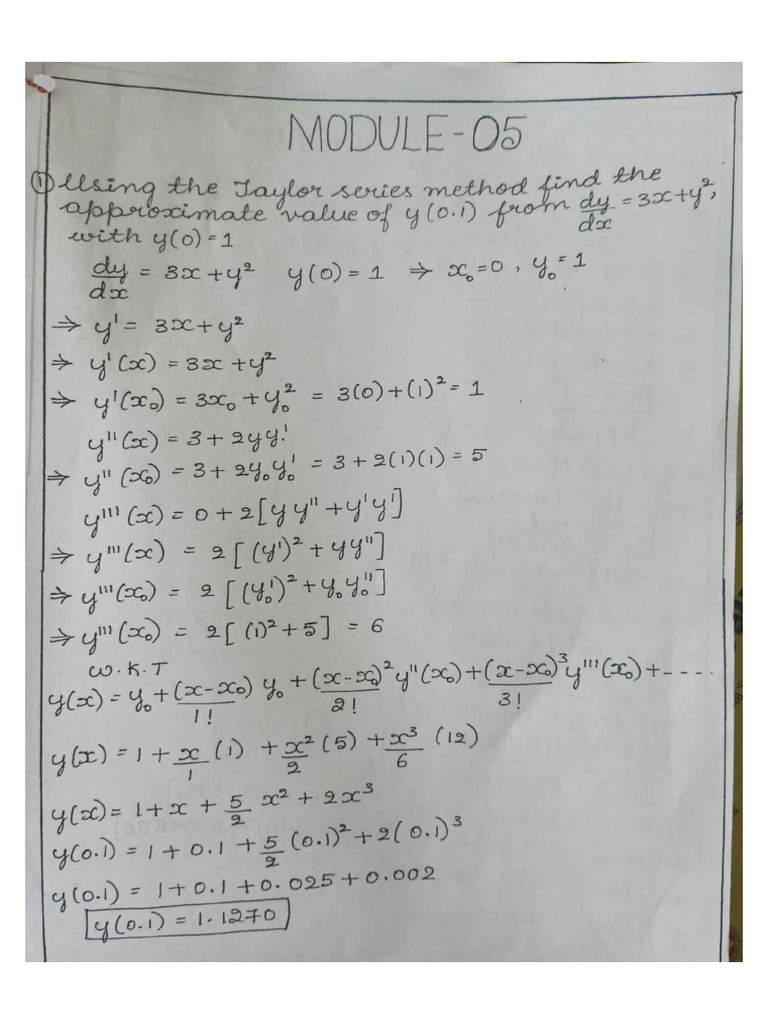 MODULE-05
① Using the Taylor series method find the
approximate value of y(0.1) from dy/dx = 3x+y²,
with y(0)=1
dy/dx = 3x+y² y(0)=1 ⇒ x₀=0, y₀=1
⇒ y' = 3x+y²
⇒ y'(x) = 3x+y²
⇒ y'(x₀) = 3x₀+y₀² = 3(0)+(1)² = 1
y''(x) = 3+2yy'
⇒ y''(x₀) = 3+2y₀y₀' = 3+2(1)(1) = 5
y'''(x) = 0+2[yy''+y'y']
⇒ y'''(x) = 2[(y')²+yy'']
⇒ y'''(x₀) = 2[(y₀')²+y₀y₀'']
⇒ y'''(x₀) = 2[(1)²+5] = 6
W.K.T
y(x) = y₀+(x-x₀)/1! y₀ + (x-x₀)²/2! y''(x₀)+(x-x₀)³/3! y'''(x₀)+----
y(x) = 1+x/1 (1) + x²/2 (5) + x³/6 (12)
y(x) = 1+x+5/2 x²+2x³
y(0.1) = 1+0.1+5/2 (0.1)²+2(0.1)³
y(0.1) = 1+0.1+0.025+0.002
y(0.1) = 1.1270